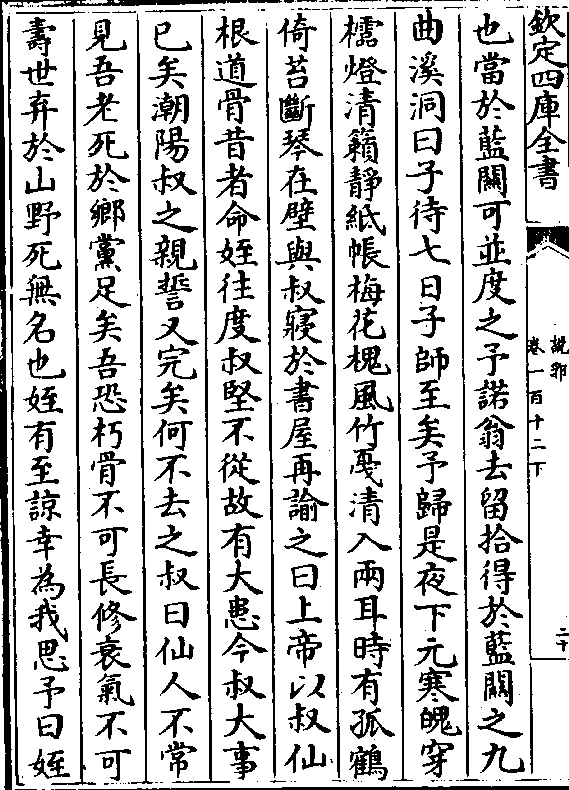 欽定四庫全書
說郛
卷一百十二下
二十
也當於藍關可並度之予諾翁去留拾得於藍關之九
曲溪洞曰子待七日子師至矣予歸是夜下元寒魄穿
櫺燈清籟靜紙帳梅花槐風竹戞清入兩耳時有孤鶴
倚苔斷琴在壁與叔寢於書屋再諭之曰上帝以叔仙
根道骨昔者命姪往度叔堅不從故有大患今叔大事
已矣潮陽叔之親誓又完矣何不去之叔曰仙人不常
見吾老死於鄉黨足矣吾恐朽骨不可長修衰氣不可
壽世弃於山野死無名也姪有至諒幸為我思予曰姪